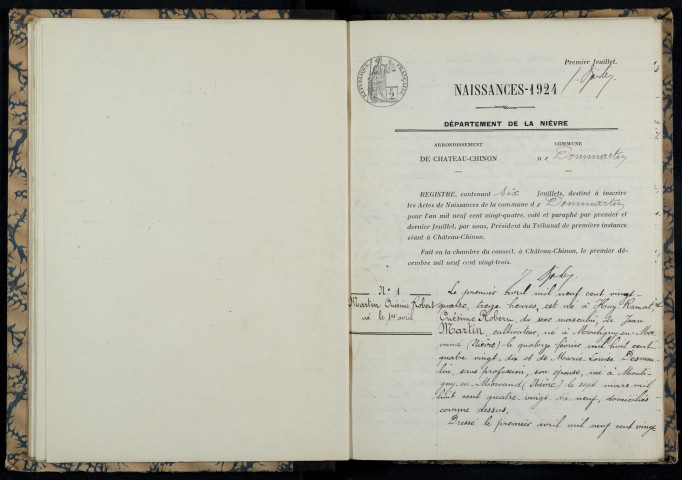 Premier feuillet.
RÉPUBLIQUE FRANÇAISE
NAISSANCES-1924
DÉPARTEMENT DE LA NIÈVRE
ARRONDISSEMENT
DE CHATEAU-CHINON
COMMUNE
D e Dommartin
REGISTRE, contenant six feuillets, destiné à inscrire
les Actes de Naissances de la commune de Dommartin
pour l'an mil neuf cent vingt-quatre, coté et paraphé par premier et
dernier feuillet, par nous, Président du Tribunal de première instance
séant à Château-Chinon.
Fait en la chambre du conseil, à Château-Chinon, le premier dé-
cembre mil neuf cent vingt-trois.
N° 1
Martin Onésime Robert
né le 1er avril
Le premier avril mil neuf cent vingt-
quatre, treize heures, est né à
Onésime Robert, du sexe masculin, de Jean
Martin, cultivateur, né à Montigny-en-Mor-
vand (Nièvre) le quatorze février mil huit cent
quatre vingt-dix et de Marie Louise
sans profession, son épouse, née à Monti-
gny-en-Morvand (Nièvre) le sept mars mil
huit cent quatre-vingt-dix neuf, domiciliés
comme dessus.
Dressé le premier avril mil neuf cent vingt